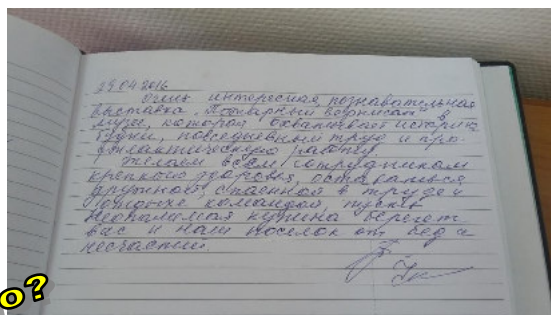 29.04.2016
Очень интересная, познавательная
выставка "Пожарный вернисаж" в
музее, которая охватывает историю
будни, повседневный труд и про-
филактическую работу.
Желаем всем сотрудникам
крепкого здоровья, оставаться
дружной, сплоченной в труде и
отдыхе командой, пусть
Неопалимая купина бережет
вас и наш поселок от бед и
несчастий.
о?